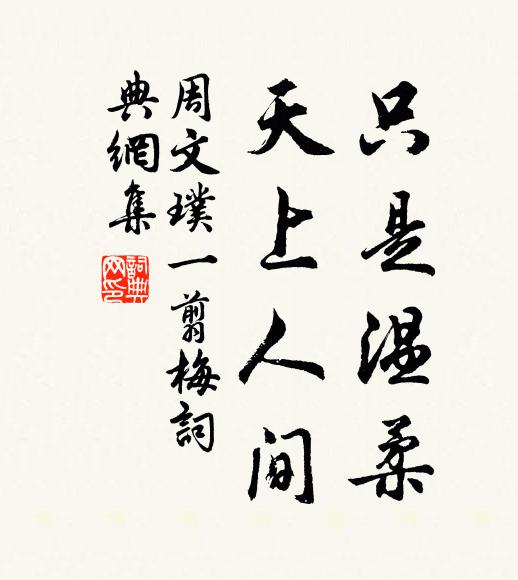 只是温柔
天上人间
周文璞一剪梅詞
典網集
詞典網印